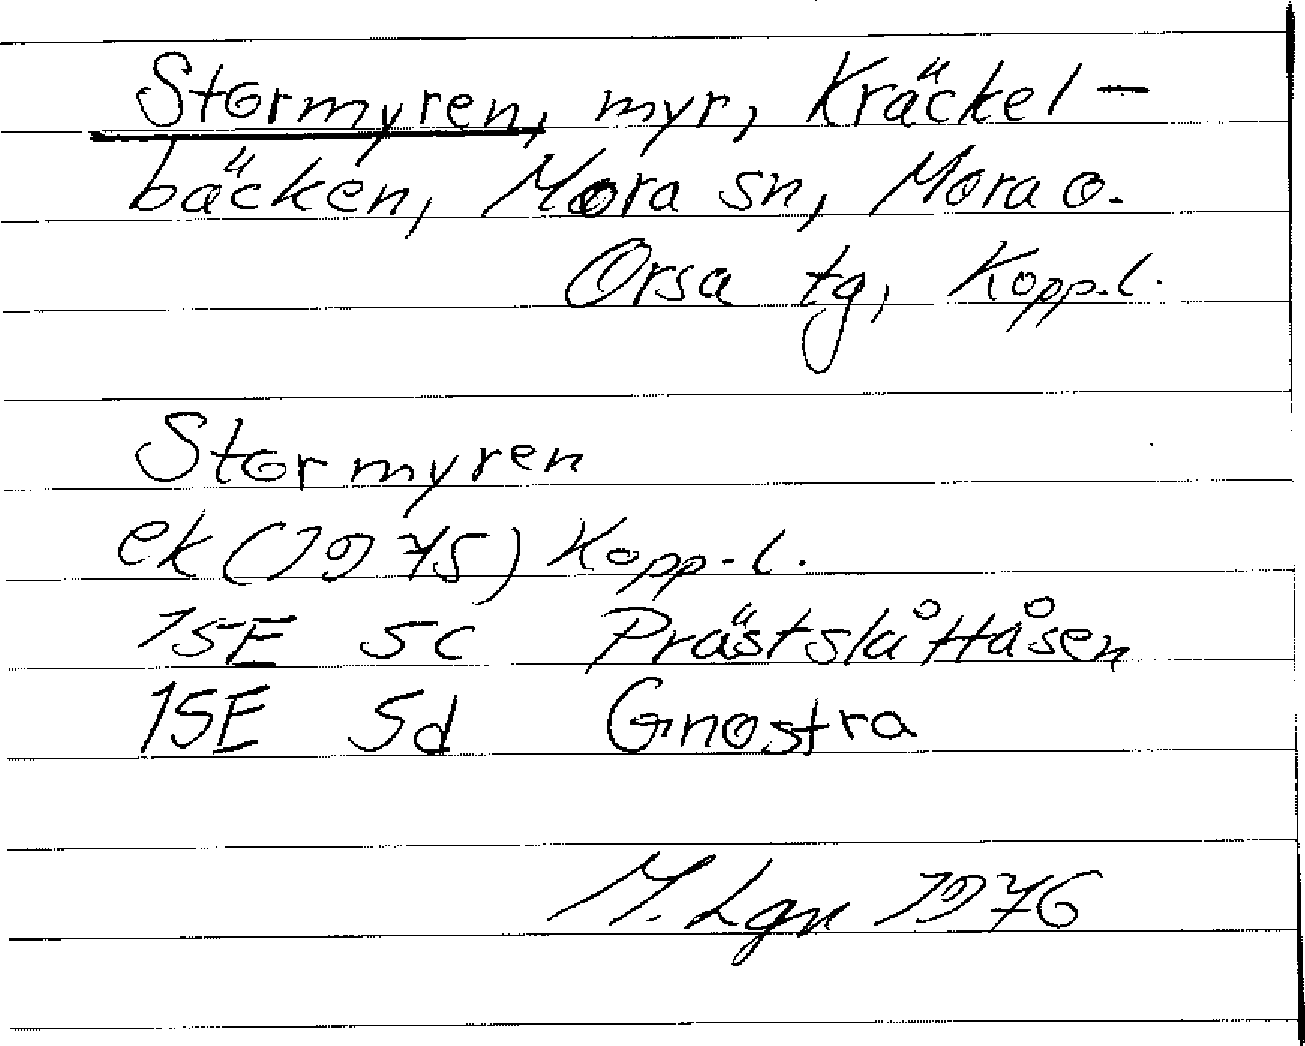 Stormyren, myr, Kräckel-
bäcken, Mora sn, Mora o.
Orsa tg, Kopp.l.
Stormyren
ek (1975) Kopp-l.
15E 5c Prästslåttåsen
15E 5d Gnostra
M. Lgn 1976